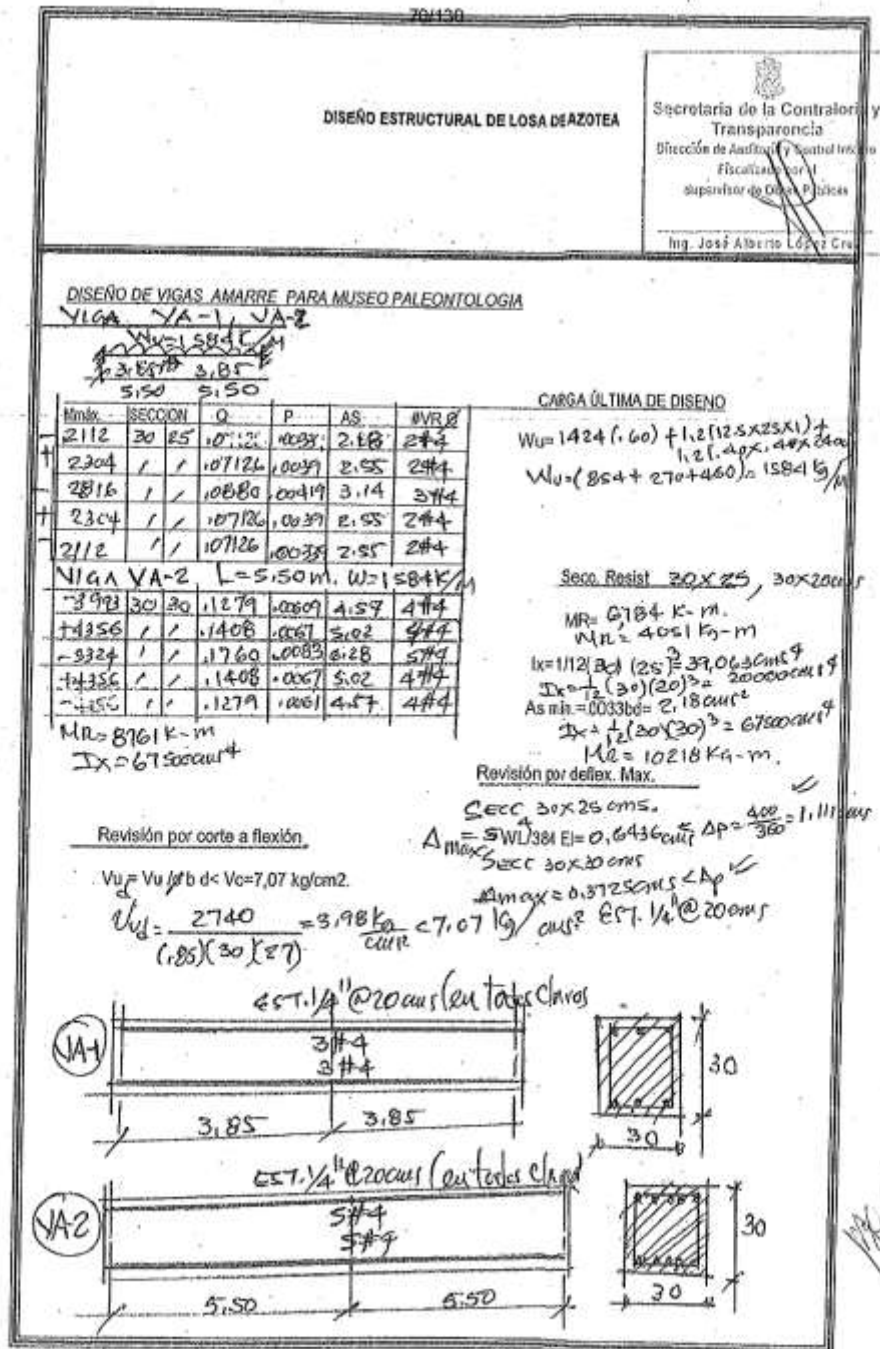 70/130
DISEÑO ESTRUCTURAL DE LOSA DE AZOTEA
Secretaria de la Contraloria y
Transparencia
Dirección de Auditoria y Control Interno
Fiscalizado por el
supervisor de Obras Públicas
Ing. José Alberto López Cruz
DISEÑO DE VIGAS AMARRE PARA MUSEO PALEONTOLOGIA
VIGA VA-1, VA-2
Wu=1584K/M
3.85 3.85
5.50 5.50
Mmáx. SECCION Q P AS #VR Ø
- 2112 30 25 2.18 2#4
+ 2304 / / .07126 .0039 2.55 2#4
- 2816 / / .0880 .00419 3.14 3#4
+ 2304 / / .07126 .0039 2.55 2#4
- 2112 / / .07126 .00339 2.55 2#4
VIGA VA-2, L=5.50m. W=1584K/M
-3993 30 30 .1279 .00609 4.57 4#4
+4356 / / .1408 .0067 5.02 4#4
-5324 / / .1760 .0083 6.28 5#4
+4356 / / .1408 .0067 5.02 4#4
/ / .1279 .0061 4.57 4#4
MR=8761K-m
Ix=67500cm4
CARGA ÚLTIMA DE DISENO
Wu=1424(.60)+1.2(12.5x25x1)+
1.2(.40x.40x2400
Wu=(854+270+460)=1584 Kg/M
Secc. Resist 30x25, 30x20cms
MR= 6784 K-m.
MR= 4051 Kg-m
Ix=1/12(30)(25)3=39,063cms4
Ix=1/12(30)(20)3=20000cm4
As min.=.0033bd=2.18cms2
Ix=1/12(30)(30)3=67500cms4
MR=10218 KG-m.
Revisión por deflex. Max.
Secc 30x25cms.
Δmax=5WL4/384 EI=0,6436cms Δp=400/360=1.111cms
Secc 30x30cms
Δmax=0.3725cms<Δp
EST. 1/4"@20cms
Revisión por corte a flexión
Vu = Vu /Ø b d< Vc=7,07 kg/cm2.
Vud= 2740 =3.98 Kg <7.07 Kg/cms2
(.85)(30)(27) cm2
EST.1/4"@20cms (en todos claros
VA-1
3#4
3#4
3.85 3.85
30
30
EST.1/4"@20cms (en todos claros)
VA-2
5#4
5#4
5.50 5.50
30
30